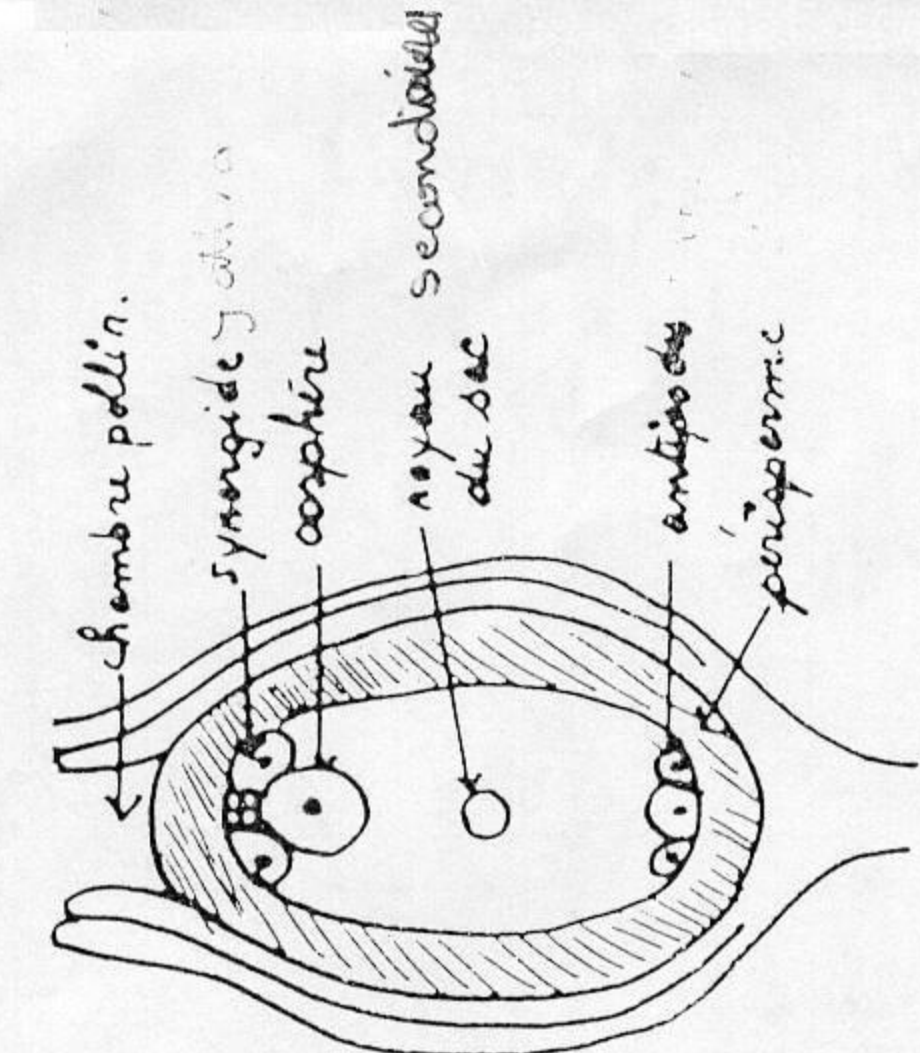 chambre pollin.
synergide
oosphère
noyau secondaire
du sac
antipodes
périsperme